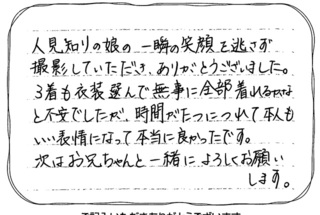 人見知りの娘の一瞬の笑顔を逃さず
撮影していただき、ありがとうございました。
3着も衣装選んで無事に全部着れるかな
と不安でしたが、時間がたつにつれて本人も
いい表情になって本当に良かったです。
次はお兄ちゃんと一緒によろしくお願い
します。